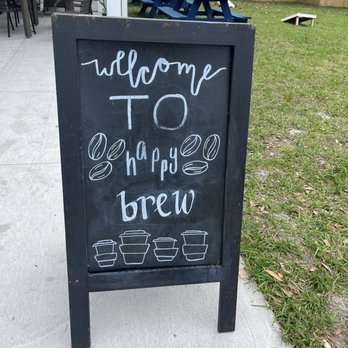 welcome
TO
happy
brew